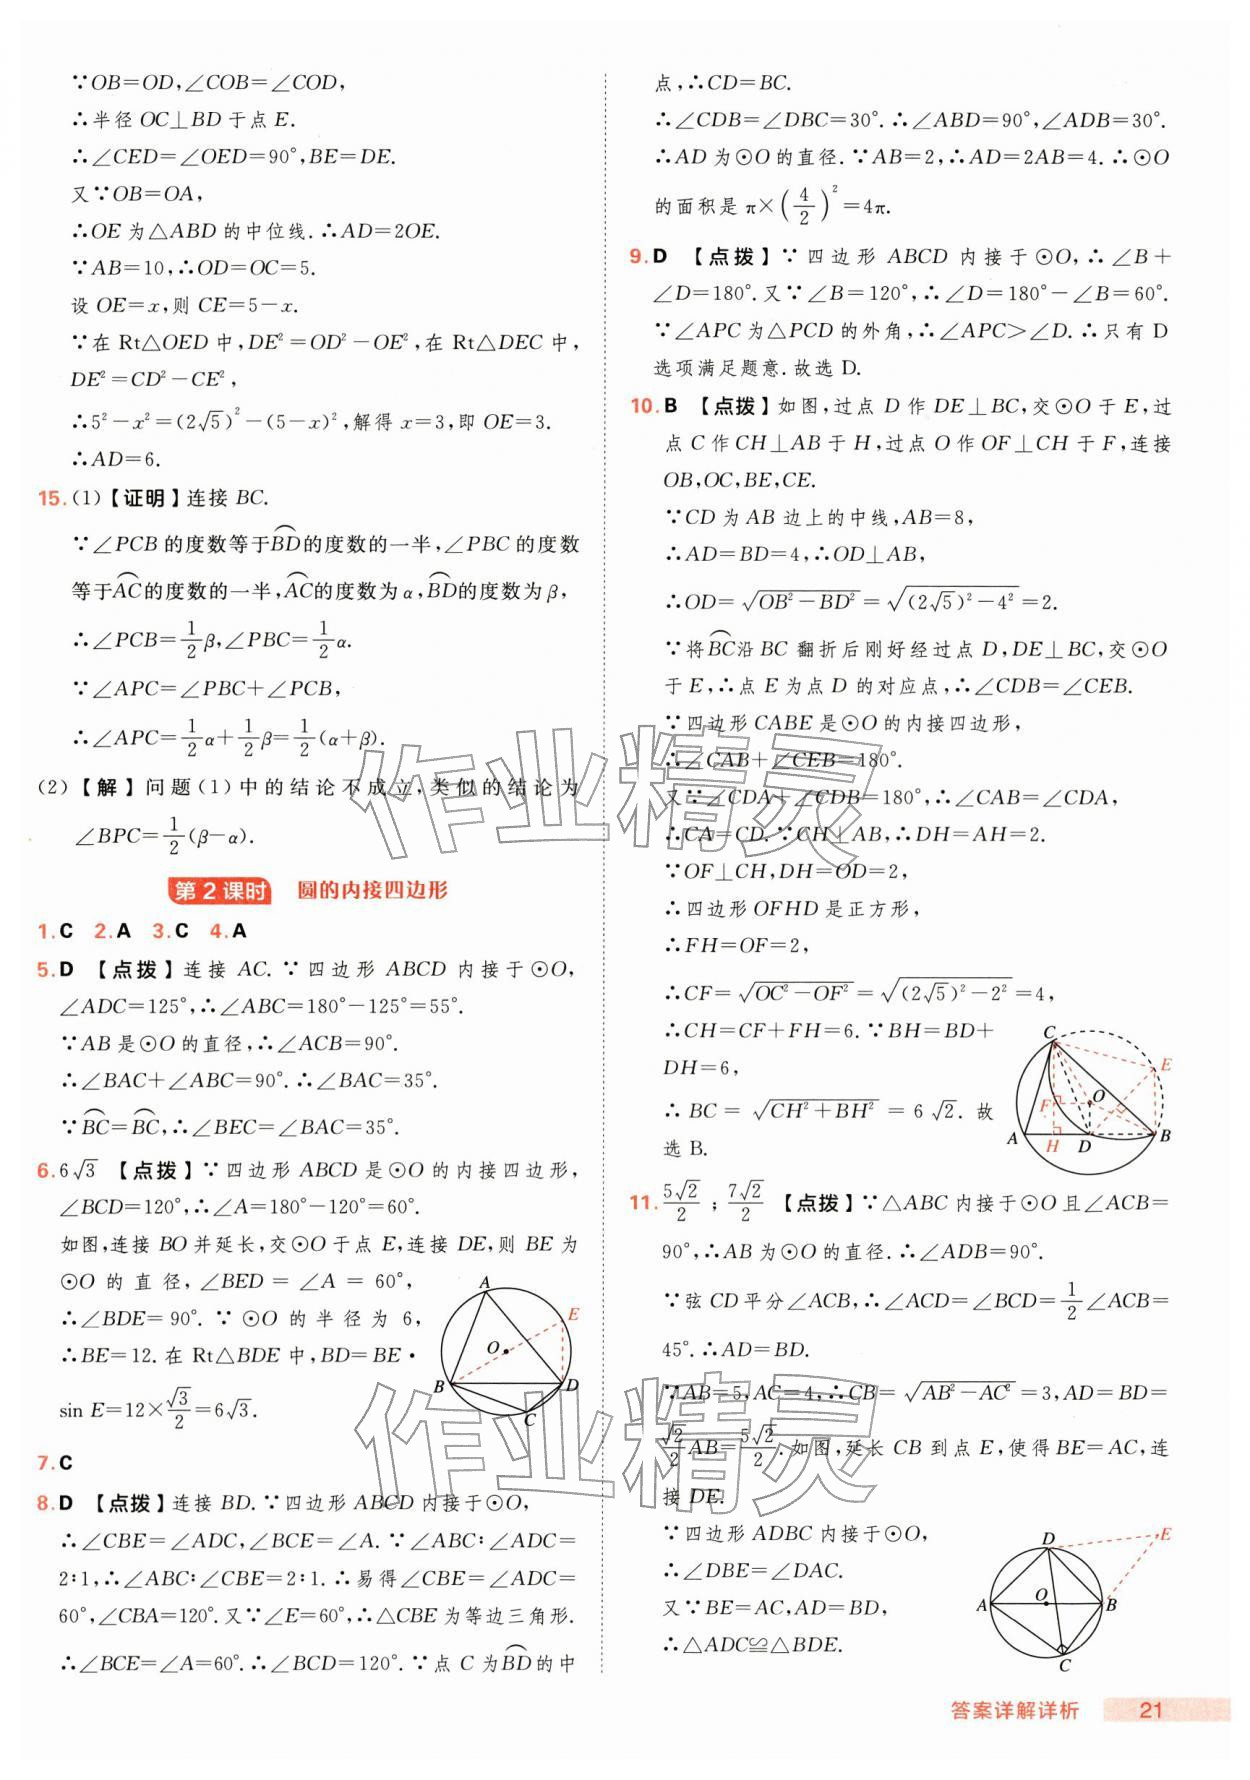 ∵OB=OD,∠COB=∠COD,
∴半径 OC⊥BD 于点 E.
∴∠CED=∠OED=90°,BE=DE.
又∵OB=OA,
∴OE 为△ABD 的中位线.∴AD=2OE.
∵AB=10,∴OD=OC=5.
设 OE=x,则 CE=5-x.
∵在 Rt△OED 中,DE²=OD²-OE²,在 Rt△DEC 中,
DE²=CD²-CE²,
∴5²-x²=(2√5)²-(5-x)²,解得 x=3,即 OE=3.
∴AD=6.
15.(1)【证明】连接 BC.
∵∠PCB 的度数等于⌒BD的度数的一半,∠PBC 的度数
等于⌒AC的度数的一半,⌒AC的度数为 α,⌒BD的度数为 β,
∴∠PCB=1/2β,∠PBC=1/2α.
∵∠APC=∠PBC+∠PCB,
∴∠APC=1/2α+1/2β=1/2(α+β).
(2)【解】问题(1)中的结论不成立,类似的结论为
∠BPC=1/2(β-α).
第 2 课时 圆的内接四边形
1.C 2.A 3.C 4.A
5.D 【点拨】连接 AC.∵四边形 ABCD 内接于⊙O,
∠ADC=125°,∴∠ABC=180°-125°=55°.
∵AB 是⊙O 的直径,∴∠ACB=90°.
∴∠BAC+∠ABC=90°.∴∠BAC=35°.
∵⌒BC=⌒BC,∴∠BEC=∠BAC=35°.
6.6√3 【点拨】∵四边形 ABCD 是⊙O 的内接四边形,
∠BCD=120°,∴∠A=180°-120°=60°.
如图,连接 BO 并延长,交⊙O 于点 E,连接 DE,则 BE 为
⊙O 的直径,∠BED=∠A=60°,
∴∠BDE=90°.∵⊙O 的半径为 6,
∴BE=12.在 Rt△BDE 中,BD=BE·
sin E=12×√3/2=6√3.
A
E
O
B
D
C
7.C
8.D 【点拨】连接 BD.∵四边形 ABCD 内接于⊙O,
∴∠CBE=∠ADC,∠BCE=∠A.∵∠ABC∶∠ADC=
2∶1,∴∠ABC∶∠CBE=2∶1.∴易得∠CBE=∠ADC=
60°,∠CBA=120°.又∵∠E=60°,∴△CBE 为等边三角形.
∴∠BCE=∠A=60°.∴∠BCD=120°.∵点 C 为⌒BD的中
点,∴CD=BC.
∴∠CDB=∠DBC=30°.∴∠ABD=90°,∠ADB=30°.
∴AD 为⊙O 的直径.∵AB=2,∴AD=2AB=4.∴⊙O
的面积是 π×(4/2)²=4π.
9.D 【点拨】∵四边形 ABCD 内接于⊙O,∴∠B+
∠D=180°.又∵∠B=120°,∴∠D=180°-∠B=60°.
∵∠APC 为△PCD 的外角,∴∠APC>∠D.∴只有 D
选项满足题意.故选 D.
10.B 【点拨】如图,过点 D 作 DE⊥BC,交⊙O 于 E,过
点 C 作 CH⊥AB 于 H,过点 O 作 OF⊥CH 于 F,连接
OB,OC,BE,CE.
∵CD 为 AB 边上的中线,AB=8,
∴AD=BD=4,∴OD⊥AB,
∴OD=√(OB²-BD²)=√((2√5)²-4²)=2.
∵将⌒BC沿 BC 翻折后刚好经过点 D,DE⊥BC,交⊙O
于 E,∴点 E 为点 D 的对应点,∴∠CDB=∠CEB.
∵四边形 CABE 是⊙O 的内接四边形,
∴∠CAB+∠CEB=180°.
又∵∠CDA+∠CDB=180°,∴∠CAB=∠CDA,
∴CA=CD.∵CH⊥AB,∴DH=AH=2.
∵OF⊥CH,DH=OD=2,
∴四边形 OFHD 是正方形,
∴FH=OF=2,
∴CF=√(OC²-OF²)=√((2√5)²-2²)=4,
∴CH=CF+FH=6.∵BH=BD+
DH=6,
∴BC=√(CH²+BH²)=6√2.故
选 B.
C
E
F
O
A
H
D
B
11.5√2/2;7√2/2 【点拨】∵△ABC 内接于⊙O 且∠ACB=
90°,∴AB 为⊙O 的直径.∴∠ADB=90°.
∵弦 CD 平分∠ACB,∴∠ACD=∠BCD=1/2∠ACB=
45°.∴AD=BD.
∵AB=5,AC=4,∴CB=√(AB²-AC²)=3,AD=BD=
√2/2AB=5√2/2.如图,延长 CB 到点 E,使得 BE=AC,连
接 DE.
∵四边形 ADBC 内接于⊙O,
∴∠DBE=∠DAC.
又∵BE=AC,AD=BD,
∴△ADC≌△BDE.
D
E
A
O
B
C
答案详解详析 21
作业精灵
作业精灵